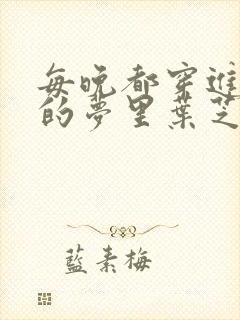 每晚都穿進
的夢里葉芝
藍素梅